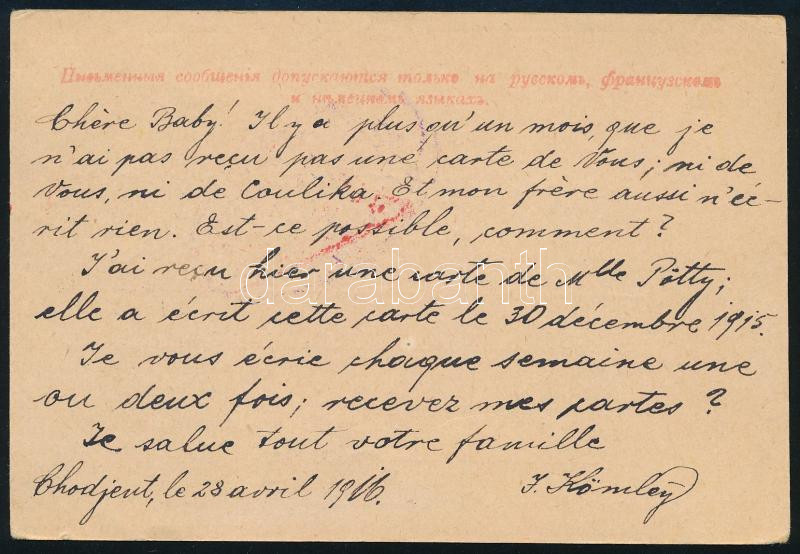 Письменныя сообщенія допускаются только на русскомъ, французскомъ
и немецкомъ языкахъ.
Chère Baby! Il y a plus qu'un mois, que je
n'ai pas reçu pas une carte de Vous; ni de
Vous, ni de Coulika. Et mon frère aussi n'éc-
rit rien. Est-ce possible, comment?
J'ai reçu hier une carte de Mlle Pötty;
elle a écrit cette carte le 30 décembre 1915.
Je vous écrie chaque semaine une
ou deux fois; recevez mes cartes?
Je salue tout votre famille
Chodjent, le 28 avril 1916. J. Kömley
darabanth